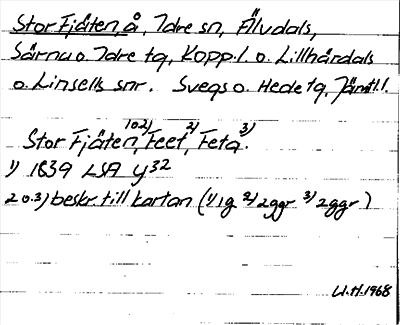 Stor Fjäten, å, Idre sn, Älvdals,
Särna o. Idre tg, Kopp. l. o. Lillhärdals
o. Linsells snr. Svegs o. Hede tg, Jämtl. l.
Stor Fjäten, 1 o 2) Feet, 2) Feta. 3)
1) 1839 LSA Y32
2 o. 3) beskr. till kartan (1) 1g 2) 2ggr 3) 2ggr)
W.H. 1968